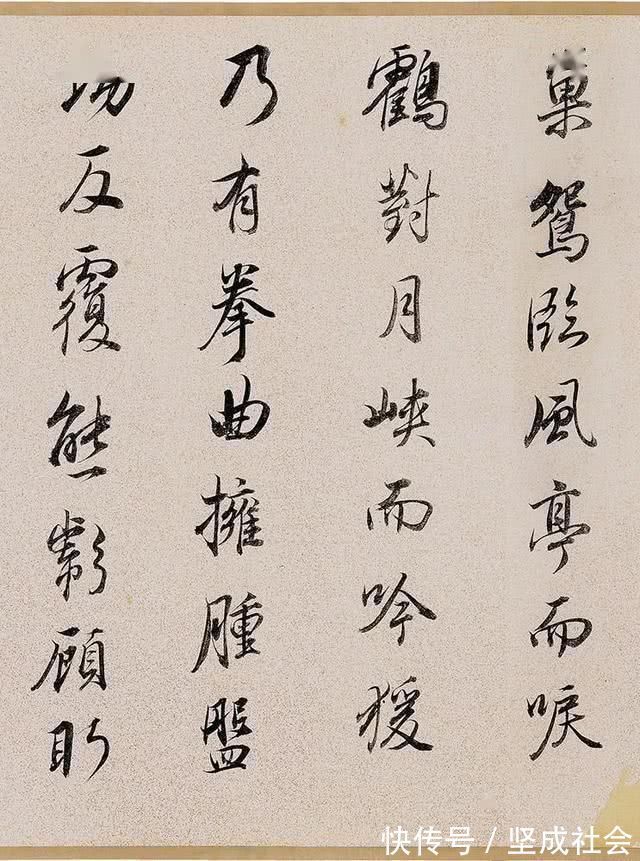 巢鴛臨風亭而唳
鶴對月峽而吟猨
乃有拳曲擁腫盤
坳反覆熊彪顧盼
快传号/坚成社会